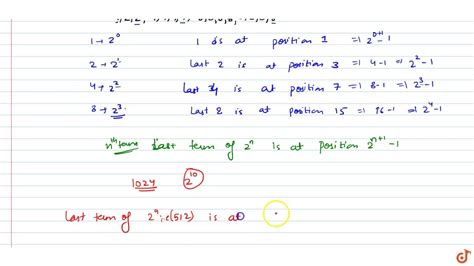 1 → 2⁰ 1 is at position 1 ⇒ 2⁰⁺¹ - 1
2 → 2¹ Last 2 is at position 3 ⇒ 4-1 ⇒ 2²-1
4 → 2² Last 4 is at position 7 ⇒ 8-1 ⇒ 2³-1
8 → 2³ Last 8 is at position 15 ⇒ 16-1 ⇒ 2⁴-1
nᵗʰ term Last term of 2ⁿ is at position 2ⁿ⁺¹-1
1024 2¹⁰
Last term of 2⁹ i.e (512) is at